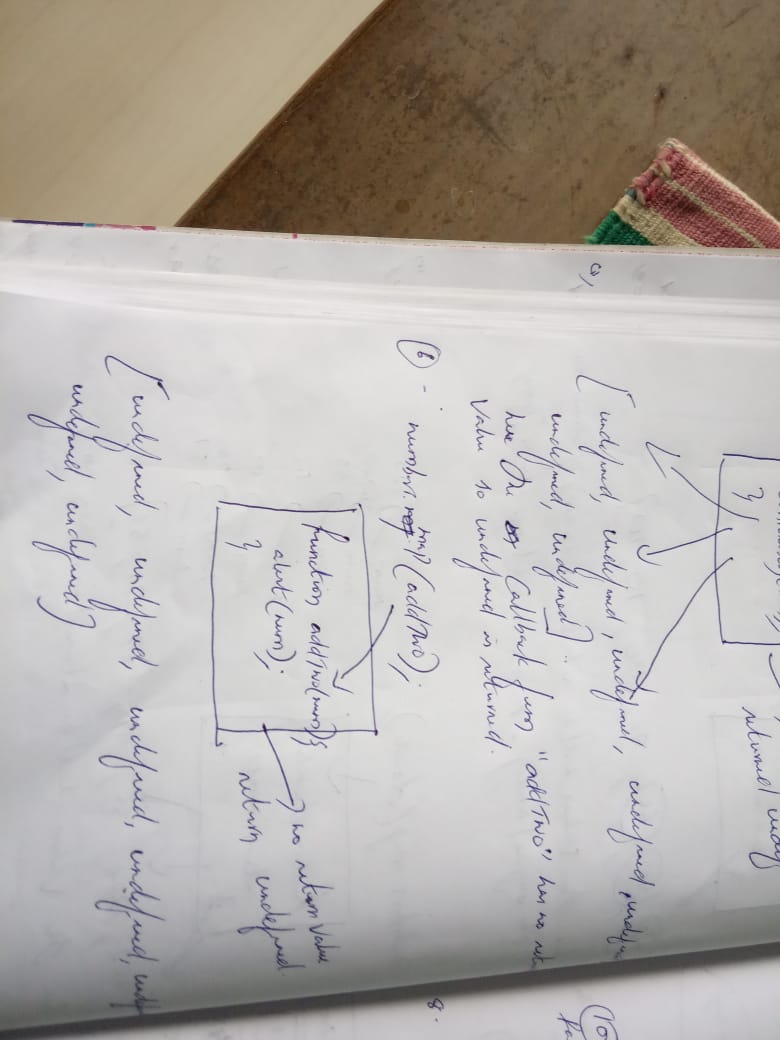 };
returned
a)
[undefined, undefined, undefined, undefined, undefined
undefined, undefined]
here the callback func "addTwo" has no
value so undefined is returned.
(b) - numbers.map(addTwo);
function addTwo(num){
alert(num);
}
no return value
return undefined.
[undefined, undefined, undefined, undefined,
undefined, undefined]
8.
(10